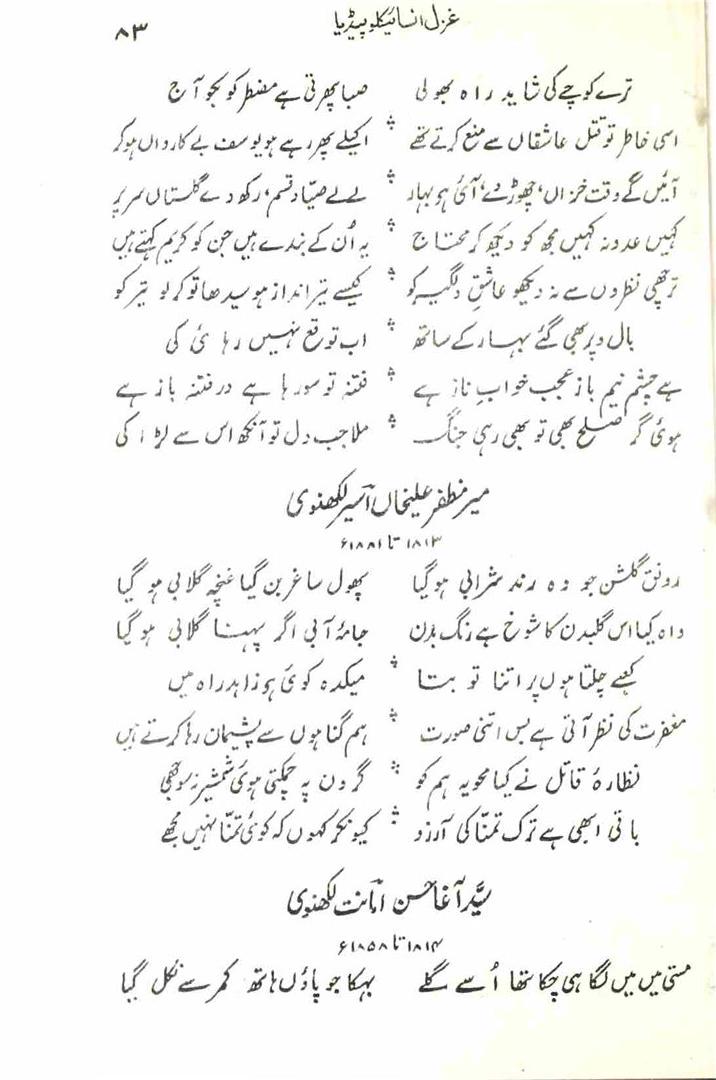 غزل انسائیکلوپیڈیا ۸۳
ترے کوچے کی شاید راہ بھولی صبا پھرتی ہے مضطر کو بجو آج
اسی خاطر تو قتل عاشقاں سے منع کرتے تھے اکیلے پھر رہے ہو یوسف بے کارواں ہو کر
آئیں گے وقت خزاں، چھوڑ دے، آئی ہو بہار لے لے صیّاد قسم، رکھ دے گلستاں سر پر
کہیں عدد نہ کہیں مجھ کو دیکھ کر محتاج یہ اُن کے بندے ہیں جن کو کریم کہتے ہیں
ترچھی نظروں سے نہ دیکھو عاشقِ دلگیر کو کیسے تیر انداز ہو سیدھا تو کر لو تیر کو
بال و پر بھی گئے بہار کے ساتھ اب توقع نہیں رہائی کی
ہے چشم نیم باز عجب خوابِ ناز ہے فتنہ تو سو رہا ہے درِ فتنہ باز ہے
ہوئی گر صلح بھی تو بھی رہی جنگ ملا جب دل تو آنکھ اس سے لڑا کی
میر مظفر علیخاں اسیر لکھنوی
۱۸۱۳ تا ۱۸۸۱ء
رونق گلشن جو وہ رند شرابی ہو گیا پھول ساغر بن گیا غنچہ گلابی ہو گیا
واہ کیا اس گلبدن کا شوخ ہے رنگ بدن جامۂ آبی اگر پہنا گلابی ہو گیا
کعبے چلتا ہوں پر اتنا تو بتا میکدہ کوئی ہو زاہد راہ میں
مغفرت کی نظر آتی ہے بس اتنی صورت ہم گناہوں سے پشیمان رہا کرتے ہیں
نظارۂ قاتل نے کیا محو یہ ہم کو گردن پہ چمکتی ہوئی شمشیر نہ سوجھی
باقی ابھی ہے ترک تمنّا کی آرزو کیونکر کہوں کہ کوئی تمنّا نہیں مجھے
سیّد آغا حسن امانت لکھنوی
۱۸۱۴ تا ۱۸۵۸ء
مستی میں میں لگا ہی چکا تھا اُسے گلے بہکا جو پاؤں ہاتھ کمر سے نکل گیا